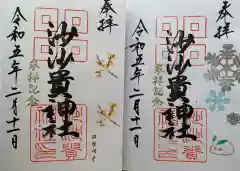 奉拝
沙沙貴神社
参拝記念
令和五年二月十一日
奉拝
沙沙貴神社
参拝記念
令和五年二月十一日